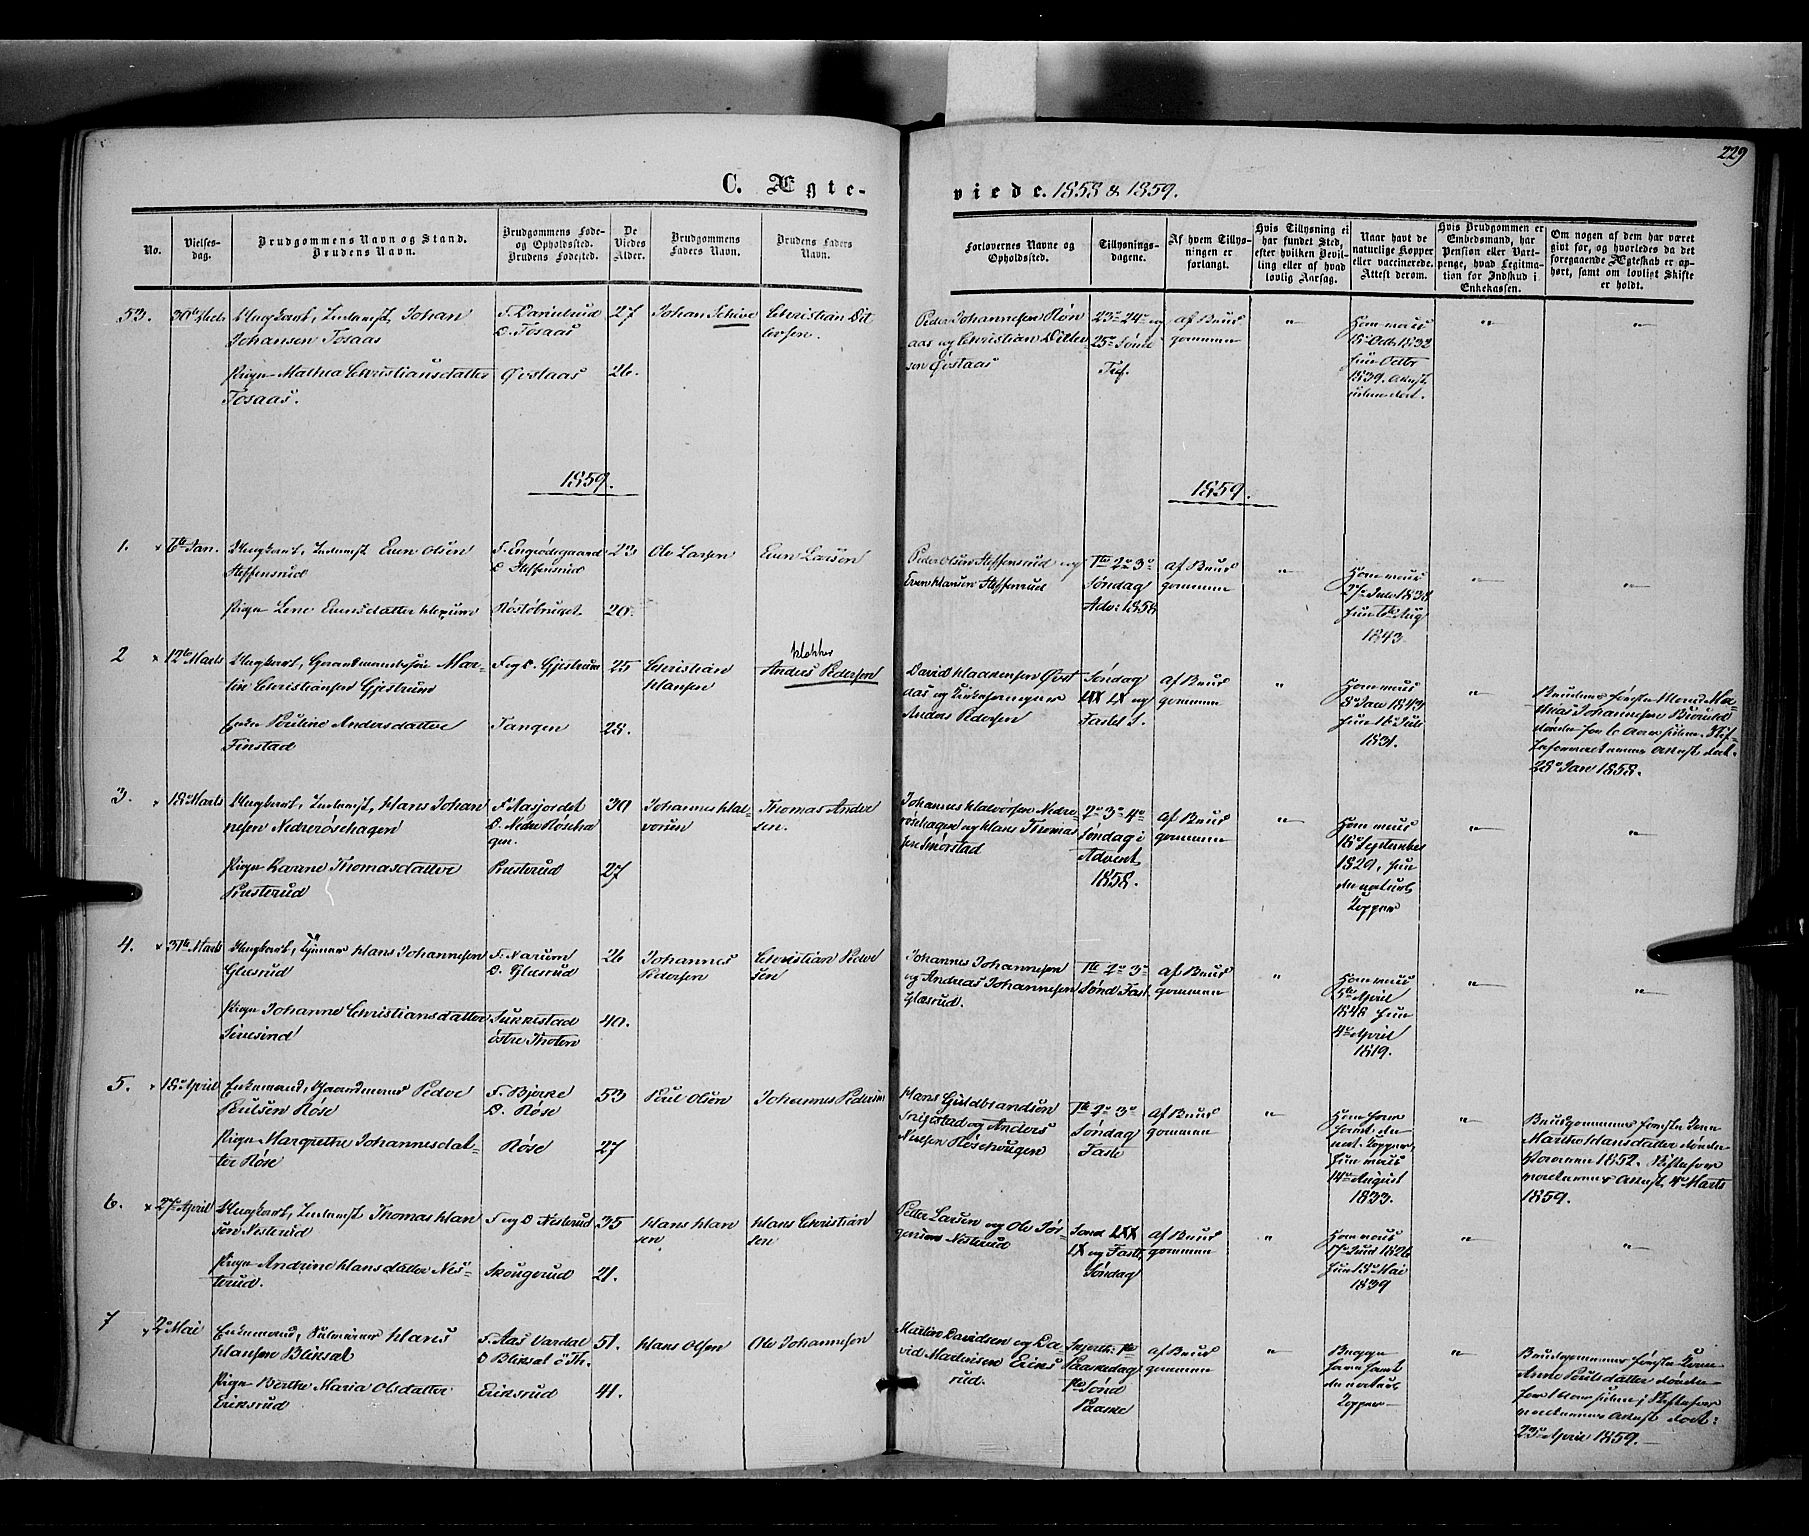 229
C. Ægte-
viede. 1858 & 1859.
No.
Vielses-
dag.
Brudgommens Navn og Stand.
Brudens Navn.
Brudgommens Føde-
og Opholdssted.
Brudens Fødested.
De
Viedes
Alder.
Brudgommens
Faders Navn.
Brudens Faders
Navn.
Forlovernes Navne og
Opholdssted.
Tillysnings-
dagene.
Af hvem Tillys-
ningen er
forlangt.
Hvis Tillysning ei
har fundet Sted,
efter hvilken Bevil-
ling eller af hvad
lovlig Aarsag.
Naar havt de
naturlige Kopper
eller vaccinerede.
Attest derom.
Hvis Brudgommen er
Embedsmand, har
Pension eller Vart-
penge, hvad Legitma-
tion for Indskud i
Enkekassen.
Om nogen af dem har været
givt for, og hvorledes da det
foregaaende Ægteskab er op-
hørt, samt om lovligt Skifte
er holdt.
53.
Ungkarl, Inderst Johan
Johansen Tosaas
Pigen Mathea Christiansdatter
Tosaas.
O. Tosaas
Øvstaas
27
26.
Johan
Christian Dit
levsen.
Peder Johannesen Røn
aas og Christian Ditlev
sen Øvstaas
23de 24de og
25de Sønd
Trf.
af Brud
gommen
"
Ham vacc
15 Octb 1832
hun Octbr
1839. Attest
"
"
1859.
1859.
1.
6te Jan.
Ungkarl, Inderst Even Olsen
Steffensrud
Pigen Lene Evensdatter
F. Engeødegaard
O. Steffensrud
Røstøbruget
23
20.
Ole Larsen
Even Larsen
Peder Olsen Steffensrud og
Even Hansen Steffensrud
1te 2de 3de
Søndag
Adv: 1858
af Brud
gommen
"
Ham vacc
1838
hun Aug
1843
"
"
2
12te Marts
Ungkarl, Gaardmandssøn Mar-
tin Christiansen Gjestrum
Enke Pauline Andersdatter
Finstad
F og O. Gjestrum
Tangen
25
28.
Christian
Hansen
Klokker
Anders Pedersen
David Haakensen Øvst
aas og Kirkesanger
Anders Pedersen
Søndag
LXX LX og
Fastel. S.
af Brud
gommen
"
Ham vacc
8de Jan 1843
hun 16de Juli
1831.
"
Brudens første Mand Ma-
thias Johannesen
døde for 6 Aar siden. Skif-
teforvalterens Attest, dat.
28de Jan 1858.
3.
18de Marts
Ungkarl, Inderst, Hans Johan
nesen Nedrerøsehagen
Pigen Karene Thomasdatter
Prusterud
F. Aasjordet
O. Nedre Røseha
gen.
Prusterud
30
27
Johannes Hal-
vorsen
Thomas Andre
sen.
Johannes Halvorsen Nedre-
røsehagen og Hans Thomas
sen Smørstad
2de 3de 4de
Søndag i
Advent
1858.
af Brud
gommen
"
Ham vacc
15de September
1829, hun
de naturl
Kopper
"
"
4.
31te Marts
Ungkarl, Hans Johannesen
Glæsrud
Pigen Johanne Christiansdatter
F. Narum
O. Glæsrud
Sukkestad
østre Thoten
26
40.
Johannes
Pedersen
Christian Peder
sen
Johannes Johannesen
og Andreas Johannesen
Glæsrud.
1te 2de 3de
Sønd Fast.
af Brud
gommen
"
Ham vacc
5te April
1848 hun
4de April
1819.
"
"
5.
18de April
Enkemand, Gaardmand Peder
Poulsen Røse
Pigen Margrethe Johannesdat-
ter Røse
F. Bjørke
O. Røse
Røse
53
27
Poul Olsen
Johannes Pedersen
Hans Guldbrandsen
og Anders
Nielsen Røsehougen
1te 2de 3de
Søndag
Faste
af Brud
gommen
"
Ham har
havt de
nat. Kopper,
hun vacc
14de August
1833.
"
Brudgommens første Kone
Marthe Hansdatter døde
1852. Skiftefor
valterens Attest, 4de Marts
1859.
6.
27de April
Ungkarl, Inderst Thomas Han
sen Nesterud
Pigen Andrine Hansdatter Nes-
terud.
F og O Nesterud
Skougerud
35
21.
Hans Han
sen
Hans Christian
sen
Peter Larsen og Ole Jør-
gensen Nesterud
Sønd LXX
LX og Fastl.
Søndag
af Brud
gommen
"
Ham vacc
17de Juni 1826
hun 18de Mai
1839
"
"
7
2de Mai
Enkemand, Hans
Hansen Bliksal
Pigen Berthe Maria Olsdatter
Eriksrud
F. Aas Vardal
O Bliksal ø Th.
Eriksrud
51.
41.
Hans Olsen
Ole Johannesen
Martin Davidsen og Da-
vid Martinsen Eriks
rud.
Skjærth: 1te
Paaskedag
1te Sønd
Paaske
af Brud
gommen
"
Begge
have havt
de naturl
Kopper
"
Brudgommens første Kone
Anne Poulsdatter døde
for 1 Aar siden; Skiftefor
valterens Attest dat:
23de April 1859.